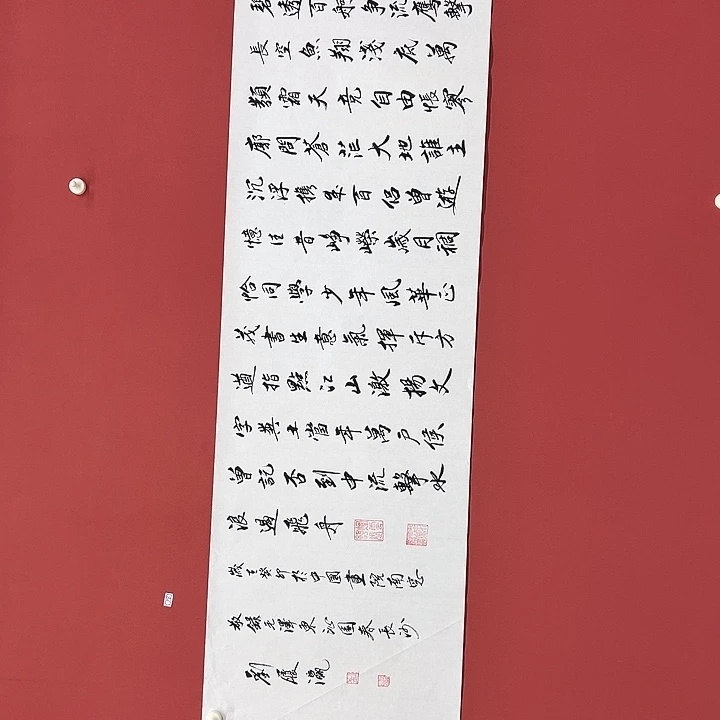 碧透百舸争流鷹擊
長空魚翔淺底萬
類霜天竞自由悵寥
廓問蒼茫大地誰主
沉浮携来百侣曾遊
憶往昔崢嶸歲月稠
恰同學少年風華正
茂書生意氣揮斥方
遒指點江山激揚文
字糞土當年萬户侯
曾記否到中流擊水
浪遏飛舟
歲在癸卯於中國畫院南窓
敬錄毛澤東沁園春長沙
劉